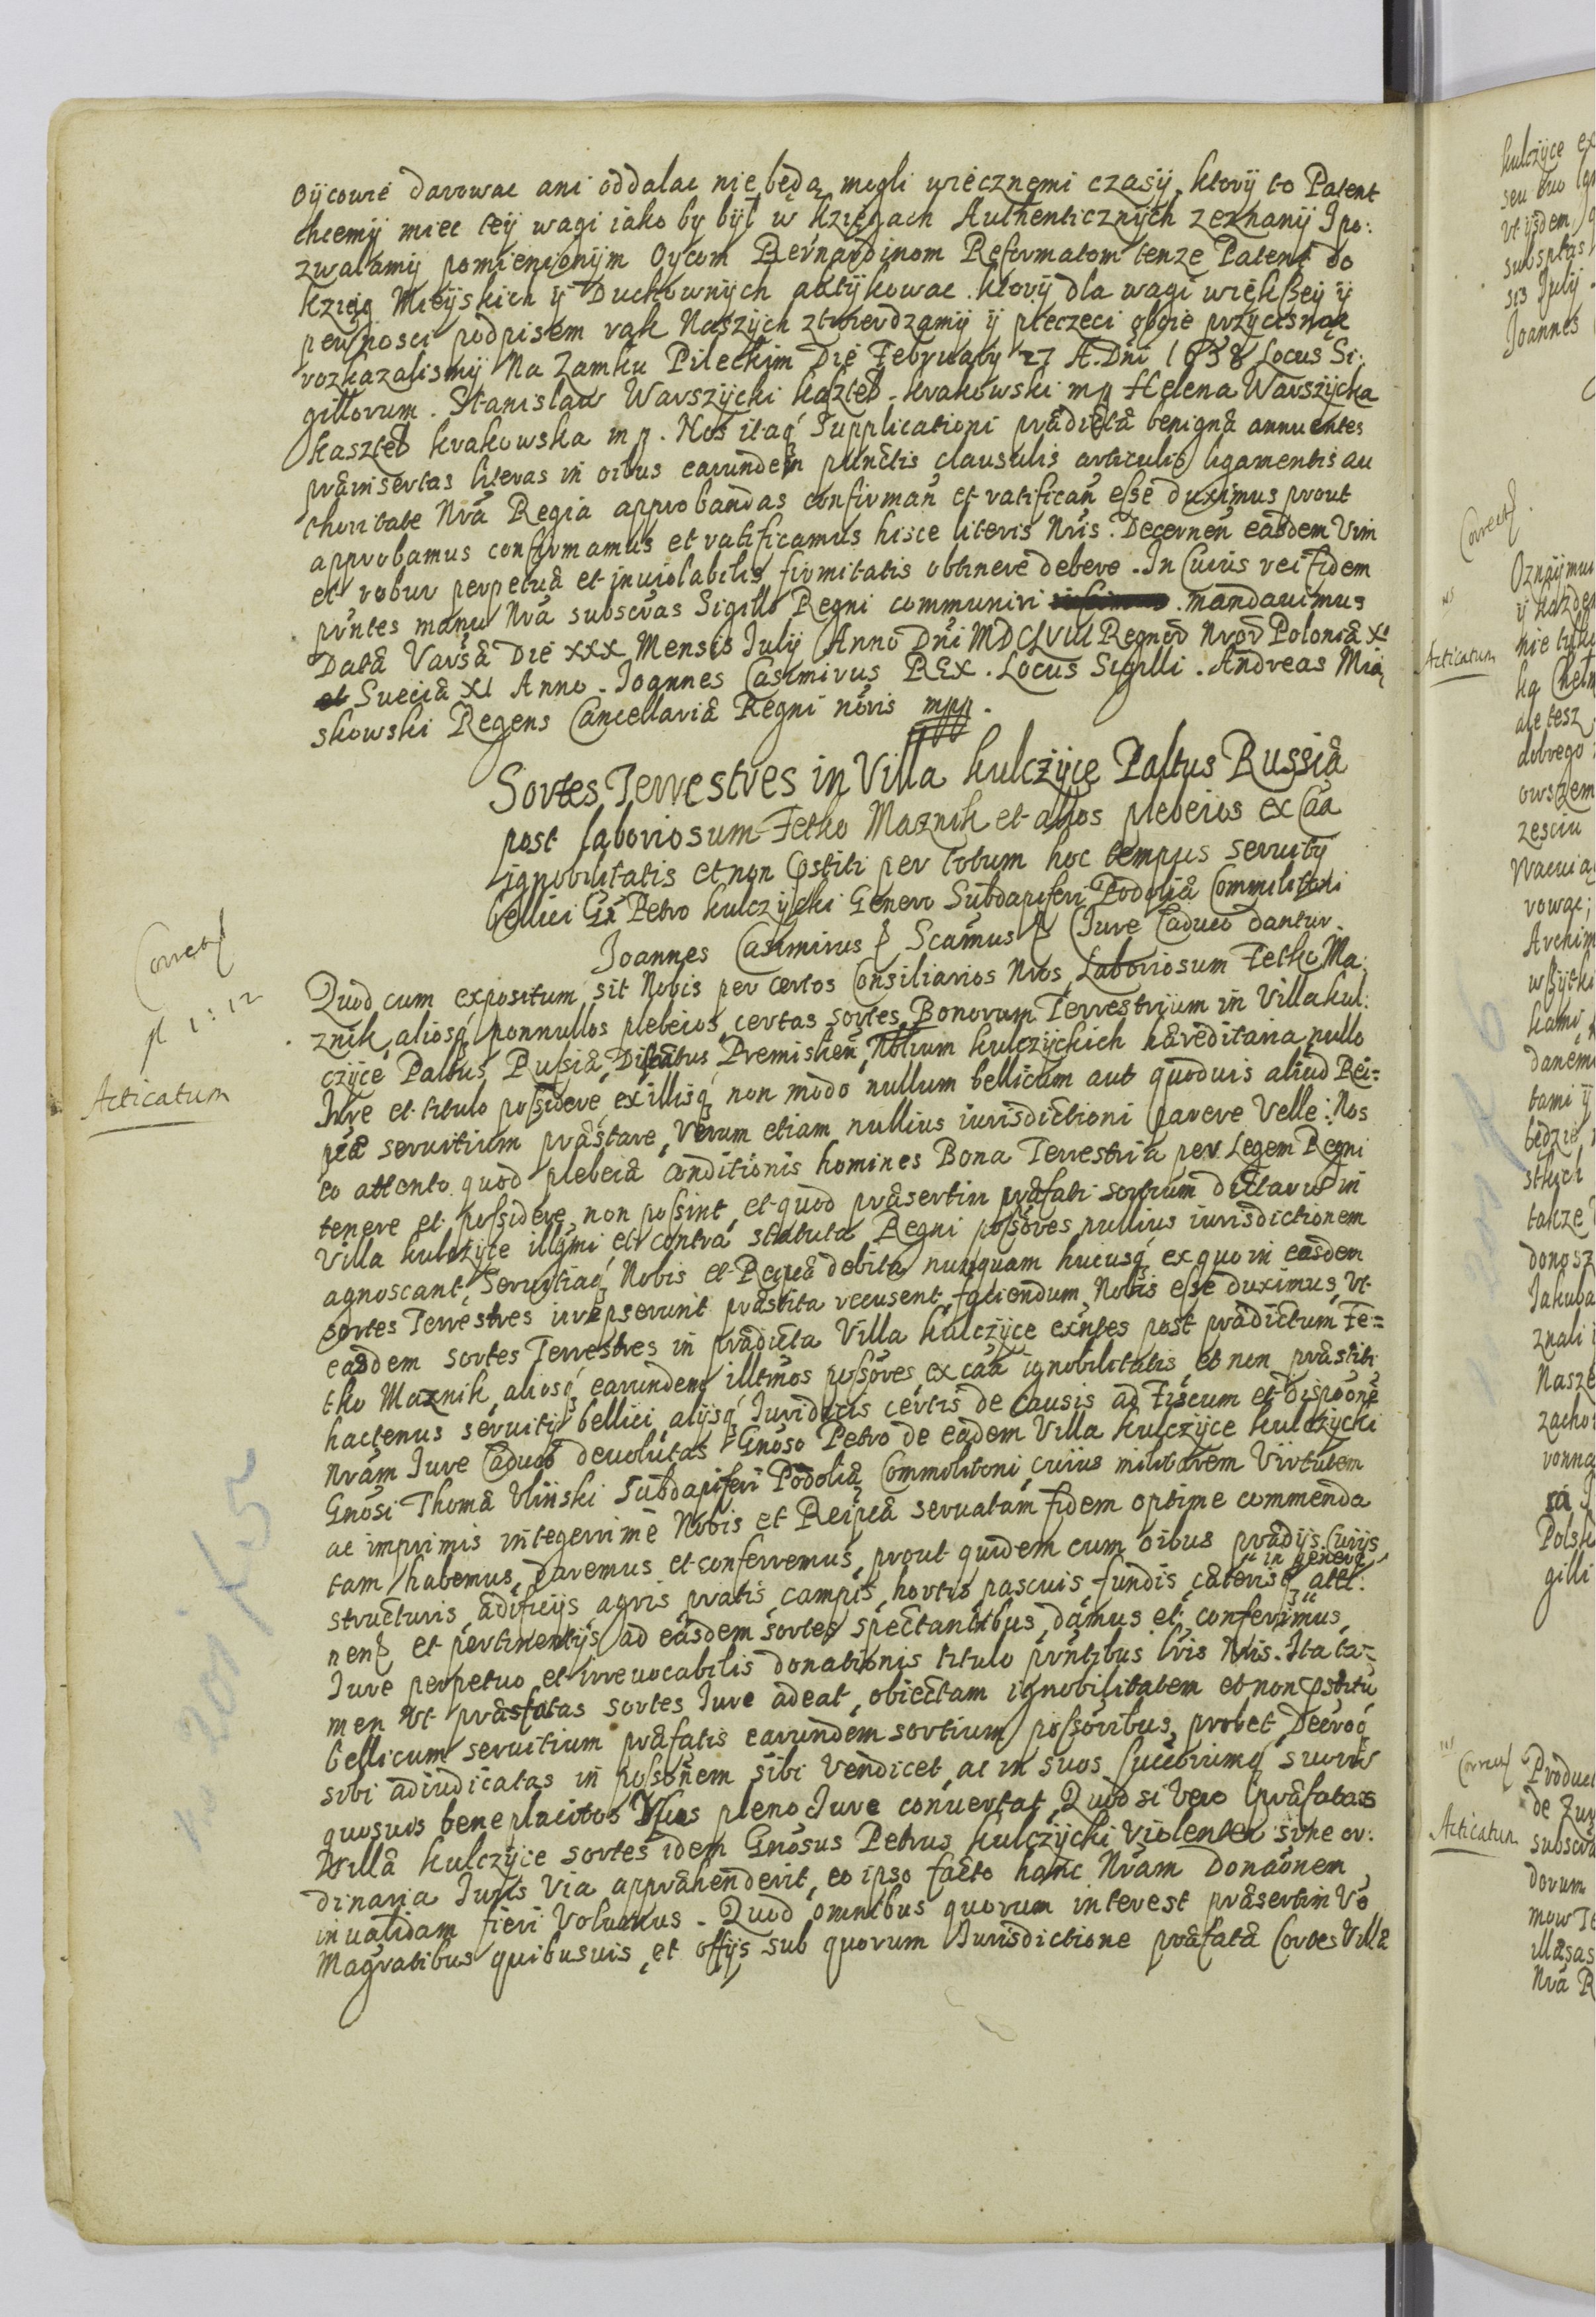 oycowie darowac ani oddalac nie będą mogli wiecznemi czasy, ktory to Patent
chcemy miec tey wagi iako by był w Xięgach Authenticznych zeznany Ipo:
zwalamy pomienionym Oycom Bernardinom Reformatom tenze Patent do
Xziąg Mieyskich y Duchownych aktykowac. ktory dla wagi większey y
pewnosci podpisem rąk Naszych ztwierdzamy y pieczeci oboie przycisnąc
rozkazalismy Na Zamku Pileckim Die February 27 A. Dni 1658 Locus Si:
gillorum. Stanislaw Warszycki Kasztel. Krakowski mp Helena Warszycka
Kasztel Krakowska mp. Nos itaq́ Supplicationi prædictæ benignæ annuentes
præinsertas literas in oibus earundem punctis clausulis articulis ligamentis au
thoritate Nrã Regia approbandas confirman̄ et ratifican̄ eſse duximus prout
approbamus confirmamus et ratificamus hisce literis Nris. Decernen̄ easdem Vim
et robur perpetuæ et inuiolabilis firmitatis obtinere debere. In Cuius rei fidem
prntes manu Nrã subscras Sigillo Regni communiri mandauimus
Datæ Varsæ Die XXX Mensis Iuly Anno Dni MDCLVIII Regnor̃ Nror̃ Poloniæ X
et Sueciæ XI Anno. Joannes Casimirus REX. Locus Sigilli. Andreas Mia
skowski Regens Cancellariæ Regni nõris mpp.
Sortes Terrestres in Villa Kulczyce Paltus Russiæ
post laboriosum Fetko Maznik et alios plebeios ex Cãa
ignobilitatis et non pstiti per totum hoc tempus seruity
bellici Gn Petro Kulczycki Genero Subdapiferi Podoliæ Commilitoni
Iure Caduco dantur.
Joannes Casimirus ₰ Scamus ₰
Quod cum expositum sit Nobis per certos Consiliarios Nros, Laboriosum Fetko Ma:
znik, aliosq́ nonnullos plebeios, certas sortes Bonorum Terrestrium in Villa Kul:
czyce Paltus Rusiæ, Districtus Premislien̄, Nobilium Kulczyckich hæreditaria nullo
Iure et titulo poſsidere, ex illisq́ non modo nullum bellicum aut quoduis aliud Rei=
pcæ seruitium præstare, Verum etiam nullius iurisdictioni parere Velle: Nos
eo attento quod plebeiæ Conditionis homines Bona Terrestria per Legem Regni
tenere et poſsidere non poſsint, et quod præsertim præfati sortium dictarum in
Villa Kulczyce illgmi et contra statuta Regni poſsores nullius iurisdictionem
agnoscant, Seruitiaq́ Nobis et Reipcæ debita nunquam hucusq́ ex quo in easdem
sortes Terrestres irrepserunt præstita recusent, faciendum Nobis eſse duximus, Vt
easdem sortes Terrestres in prædicta Villa Kulczyce exntes post prædictum Fe=
tko Maznik, aliosq́ earundem illtmos poſsores, ex cãa ignobilitatis et non præstiti
hactenus seruitij bellici, alijsq́ Iuridicis certis de Causis ad Fiscum et dispõnẽ
Nrãm Iure Caduco deuolutas Gnõso Petro de eadem Villa Kulczyce Kulczycki
Gnõsi Thomæ Vliński Subdapiferi Podoliæ Commilitoni, cuius militarem Virtutem
ac imprimis integerrimè Nobis et Reipcæ seruatam fidem optime commenda
tam habemus, daremus et conferremus, prout quidem cum oibus prædijs, Curijs
structuris, ædificijs agris, pratis, campis, hortis, pascuis, fundis, cæterisq́ in genere atti:
nen̄, et pertinentijs ad easdem sortes spectantibus, damus et conferimus,
Iure perpetuo et irreuocabilis donationis titulo prntibus lris Nris. Ita ta=
men Vt præfatas sortes Iure adeat, obiectam ignobilitatem et non pstitũ
bellicum seruitium præfatis earundem sortium poſsoribus probet, Decroq́
sibi adiudicatas in poſsõnem sibi Vendicet, ac in suos succorumq́ suorum
quosuis beneplacitos Vsus pleno Iure conuertat, Quod si Vero præfatas
Villæ Kulczyce sortes idem Gnõsus Petrus Kulczycki Violenter sine or:
dinaria Iuris Via appræhenderit, eo ipso facto hanc Nrãm Donaõnem
inualidam fieri Volumus. Quod omnibus quorum interest præsertim Vo
Magratibus quibusuis, et offijs sub quorum Iurisdictione præfatæ Sortes Villæ
Correct
pl 1: 12
Acticatum
Correct
Acticatum
Correct
Acticatum